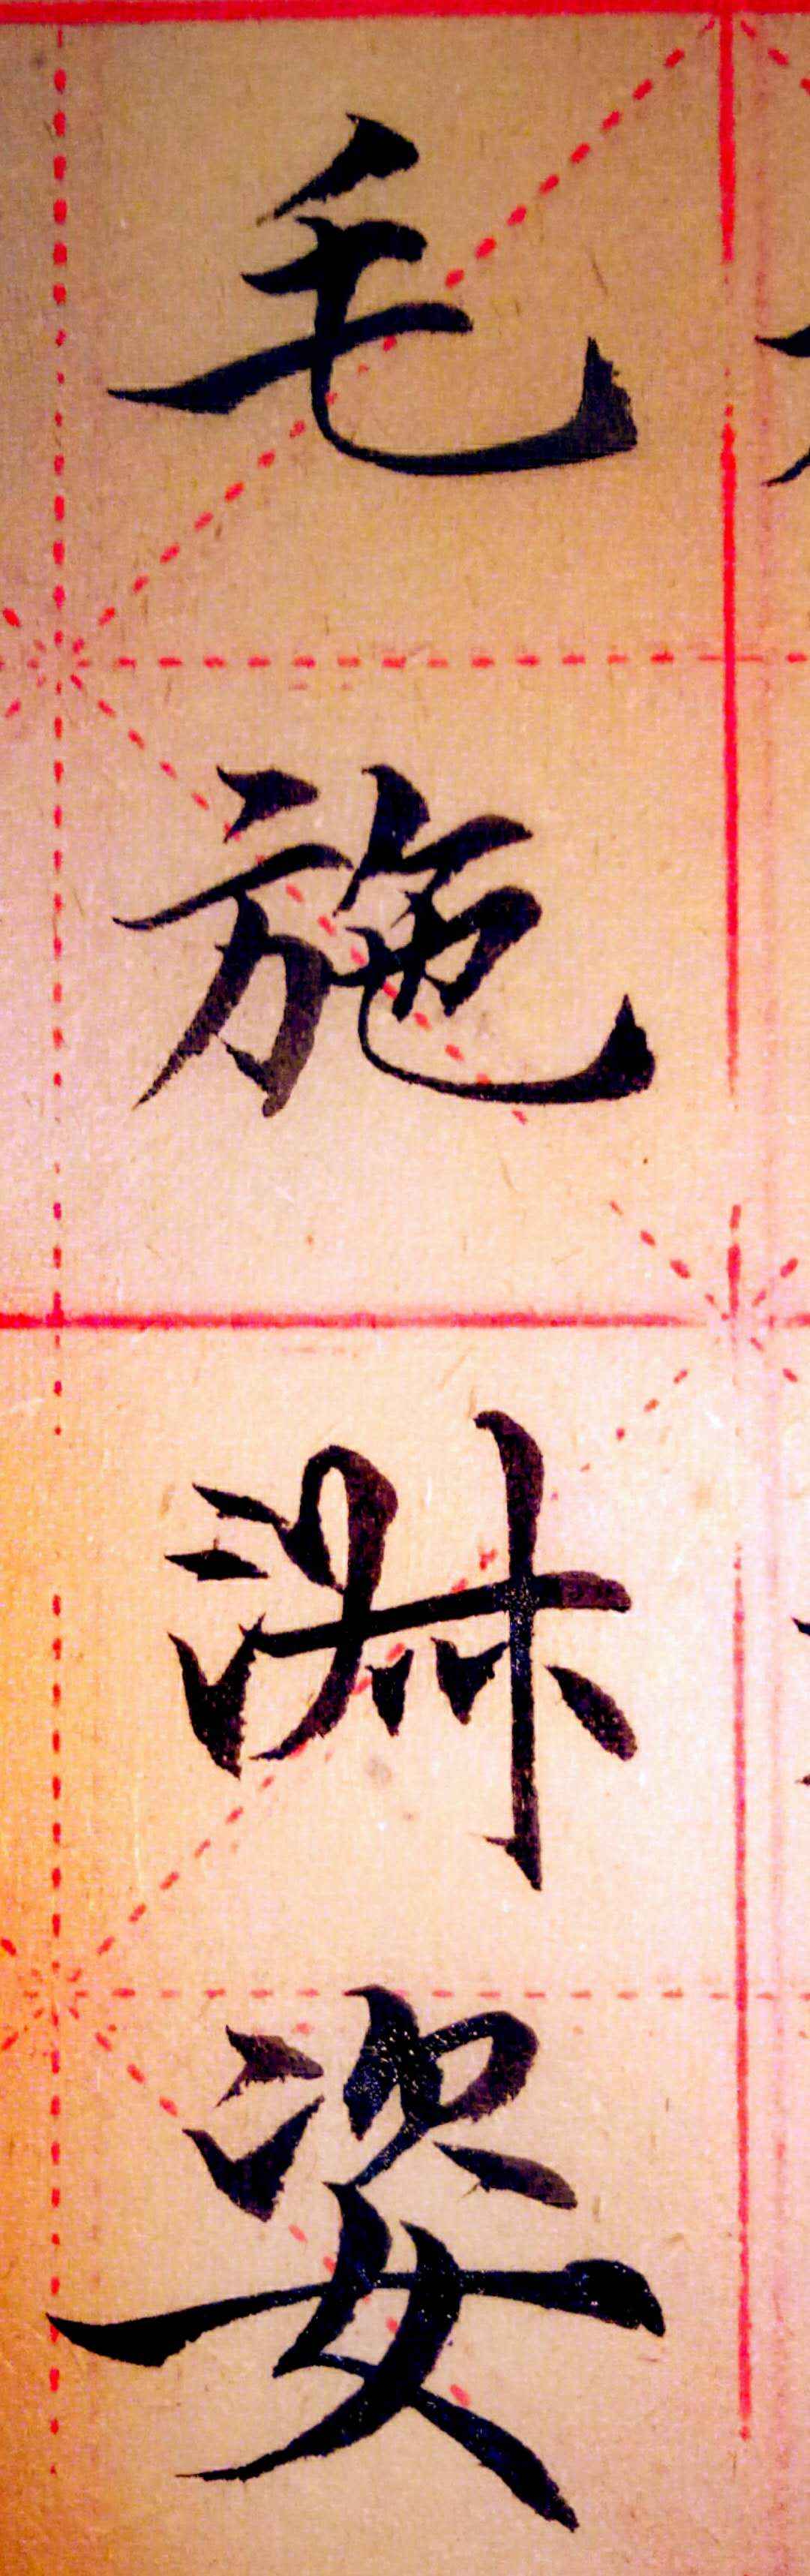 毛施淑姿